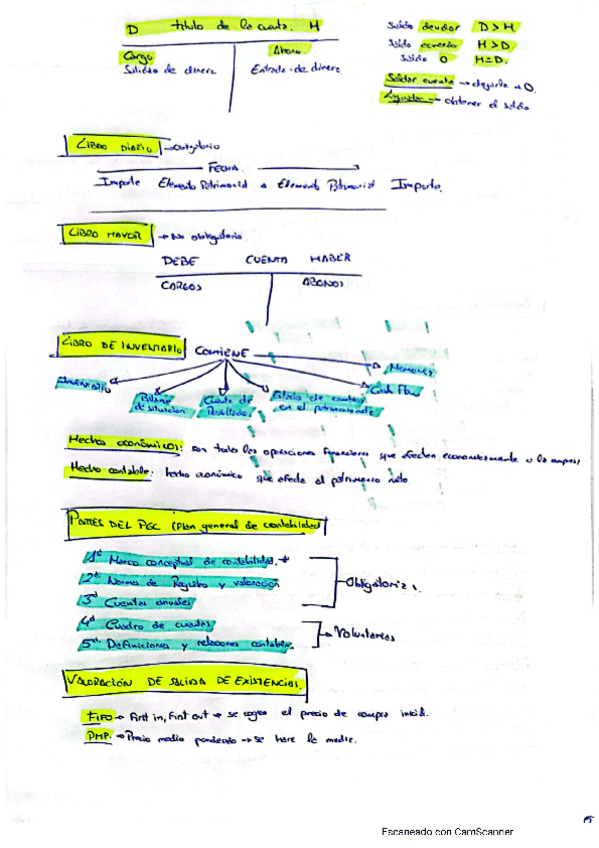 D título de la cuenta H
Cargo Abono
Salida de dinero Entrada de dinero
Saldo deudor D>H
Saldo acreedor H>D
Saldo 0 H=D.
Saldar cuenta → dejarla a 0.
Liquidar → obtener el saldo
LIBRO DIARIO → obligatorio
FECHA
Importe Elemento Patrimonial a Elemento Patrimonial Importe.
LIBRO MAYOR → No obligatorio
DEBE CUENTA HABER
CARGOS ABONOS
LIBRO DE INVENTARIO CONTIENE
Memoria
Cash Flow
Inventario
Balance de situación
Cuenta de Resultado
Estado de cambios en el patrimonio neto
Hechos económicos: son todas las operaciones financieras que afectan económicamente a la empresa
Hecho contable: hecho económico que afecta al patrimonio neto
PARTES DEL PGC (Plan general de contabilidad)
1ª Marco conceptual de contabilidad. *
2ª Normas de Registro y valoración
3ª Cuentas anuales
Obligatorias.
4ª Cuadro de cuentas
5ª Definiciones y relaciones contables.
Voluntarias
VALORACIÓN DE SALIDA DE EXISTENCIAS.
FIFO → First in, First out → se coge el precio de compra inicial.
PMP. → Precio medio ponderado → se hace la media.
Escaneado con CamScanner